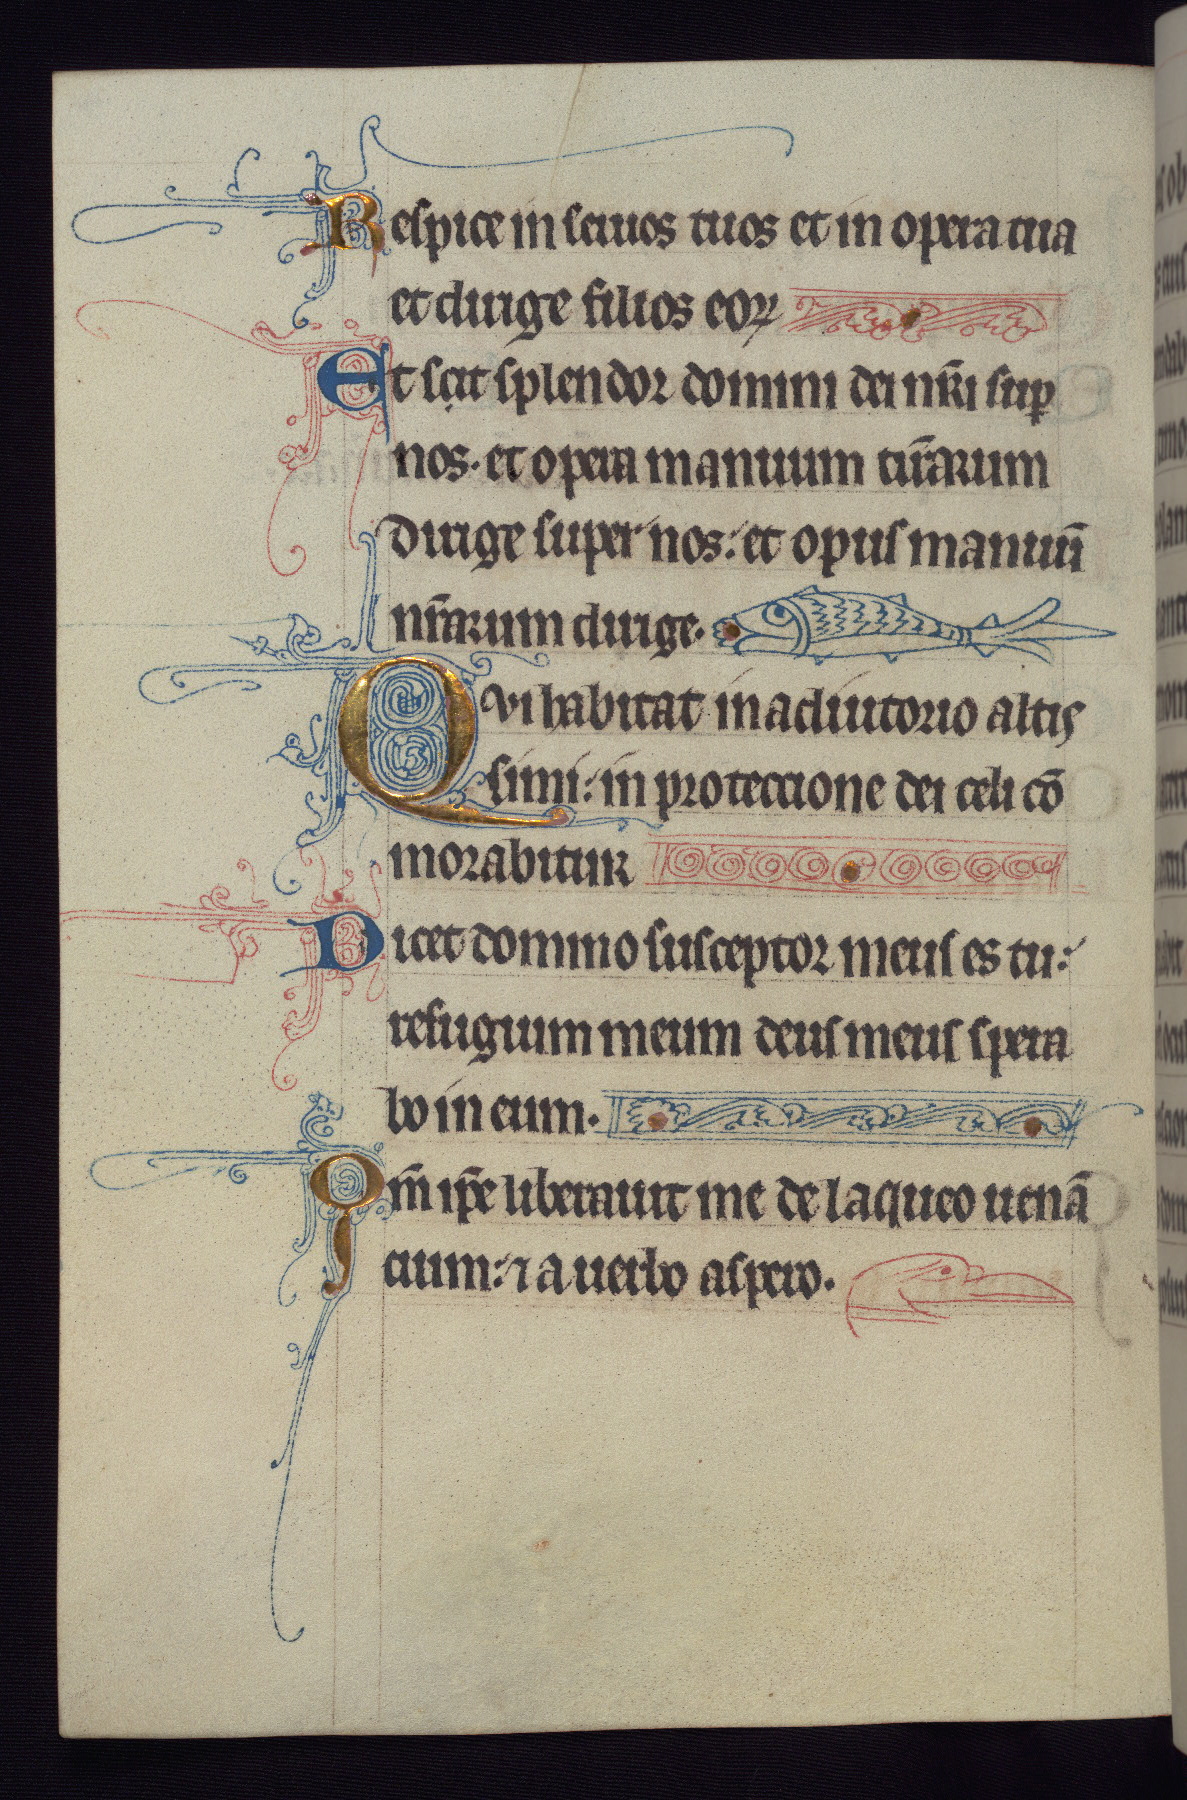 Respice in seruos tuos et in opera tua
et dirige filios eoꝝ
Et sit splendor domini dei nr̄i suꝑ
nos. et opera manuum nr̄arum
dirige super nos: et opus manuū
nr̄arum dirige.
Qui habitat in adiutorio altis
simi: in proteccione dei celi cō
morabitur
Dicet domino susceptor meus es tu:
refugium meum deus meus spera
bo in eum.
Qm̄ ip̄e liberauit me de laqueo uenā
cium: ⁊ a uerbo aspero.